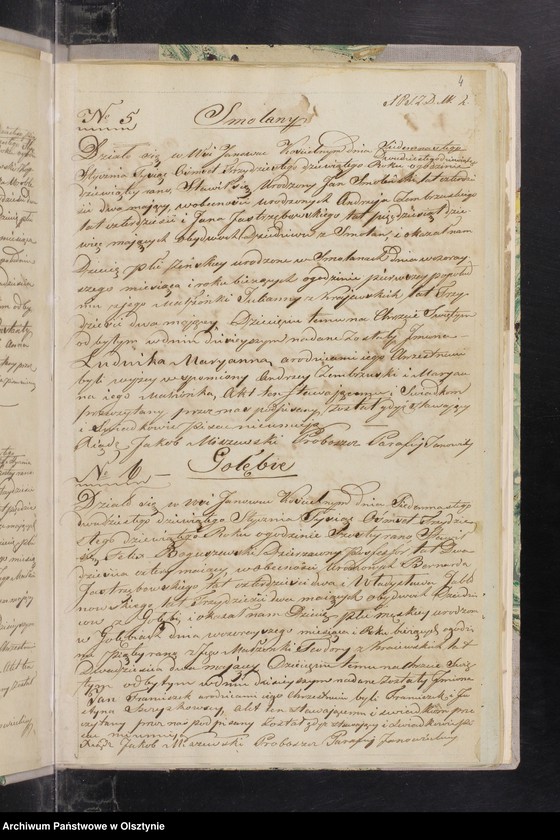 4
N° 5 Smolany
Działo się w Wsi Janowcu Kościelnym dnia
Stycznia Tysiąc Ośmset Trzydziestego dziewiątego Roku o godzinie
dziewiątej rano, Stawił się Urodzony Jan Smoleński lat czterdzie
ści dwa mający, w obecności urodzonych Andrzeja Zembrzuskiego
lat czterdzieści i Jana Jastrzębowskiego lat pięćdziesiąt dzie
więć mających obydwóch Dziedziców z Smolan, i okazał nam
Dziecię płci żeńskiej urodzone w Smolanach dnia wczoray
szego miesiąca i roku bieżących o godzinie pierwszej popołud
niu z jego Małżonki Julianny z Krajewskich lat Trzy
dzieści dwa mającej, Dziecięciu temu na Chrzcie Świętym
odbytym w dniu dzisiejszym nadane zostały Imiona
Ludwika Maryanna, a rodzicami jego Chrzestnemi
byli wyżej wspomniony Andrzej Zembrzuski i Maryan
na jego Małżonka, Akt ten Stawającemu i Świadkom
przeczytany przez nas podpisany, został gdyż stawający
i Świadkowie pisać nieumieją
Xiądz Jakob Miszewski Proboszcz Parafij Janowiec
N° 6 Gołębie
Działo się w Wsi Janowcu Kościelnym dnia
dwudziestego dziewiątego Stycznia Tysiąc Ośmset Trzydzie
stego dziewiątego Roku o godzinie
Felix Dzierżawny Possessor lat Dwa
dzieścia cztery mający, w obecności Urodzonych Bernarda
Jastrzębowskiego lat czterdzieści dwa i Władysława Jabł
nowskiego lat Trzydzieści dwa mających obydwóch Dziedzi
ców z Gołębi, i okazał nam Dziecię płci męzkiej urodzone
w Gołębiach dnia wczorajszego miesiąca i Roku bieżących o godzi
nie piątej rano z jego Małżonki Teodory z Krajewskich lat
Dwadzieścia dwa mającej Dziecięciu temu na Chrzcie Świę
tym odbytym w dniu dzisiejszym nadane zostały Imiona
Jan Franciszek a rodzicami jego Chrzestnemi byli Franciszek i Ju
styna, akt ten stawającemu i świadkom prze
czytany przez nas podpisany został gdyż stawający i świadkowie pi
sać nieumieją
Xiądz Jakob Miszewski Proboszcz Parafij Janowieckiej
Archiwum Państwowe w Olsztynie